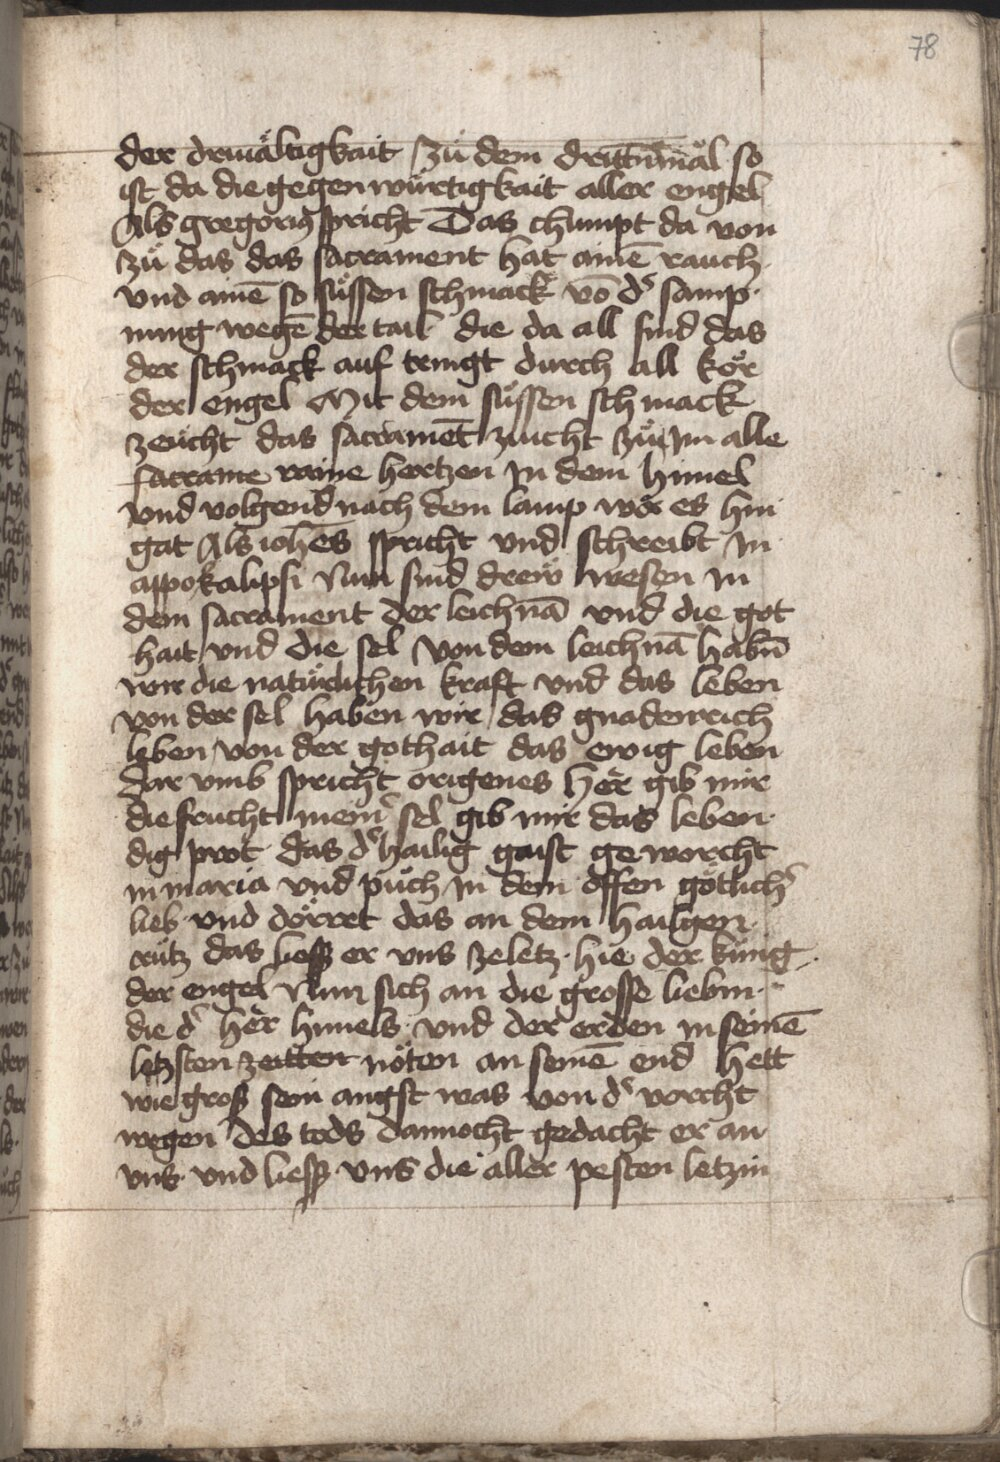 78
der driuåltigkait zů dem drittnmål so
ist da die gegenwürtigkait aller engel
Als gregoriꝰ spricht Das chumpt da von
zů das das sacrament hat ainē rauch
vnd ainē so sůssen schmack vō dˢ samp
nung wegē der tail die da all sind das
der schmack auf tringt durch all kör
der engel Mit dem süssen schmack
zeucht das sacramēt zucht zů Im alle
sacrame raine hertzen In dem himel
vnd volgend nach dem lamp wo es hin
gat Als Iohēs spricht vnd schreibt In
appokalipsi Nun sind drew wesen In
dem sacrament der leichnā vnd die got
hait vnd die sel Von dem leichnā habn̄
wir die natürlichen kraft vnd das leben
von der sel haben wir das gnadenrich
leben von der gothait das ewig leben
dar vmb spricht origenes Her gib mir
die frucht meinˢ sel gib mir das leben
dig prot das dˢ hailig gaist geworcht
In maria vnd půch In dem offen götlichˢ
lieb vnd dörret das an dem hailgen
crütz das liess er vns ze letz hie der küng
der engel Nun sich an die grosse liebin
die dˢ Her himels vnd der erden In seinē
letzsten zeitten nöten an seinē end Hett
wie gross sein angst was von dˢ vorcht
wegen des tods dannocht gedacht er an
vns vnd liess vns die aller pesten letzin